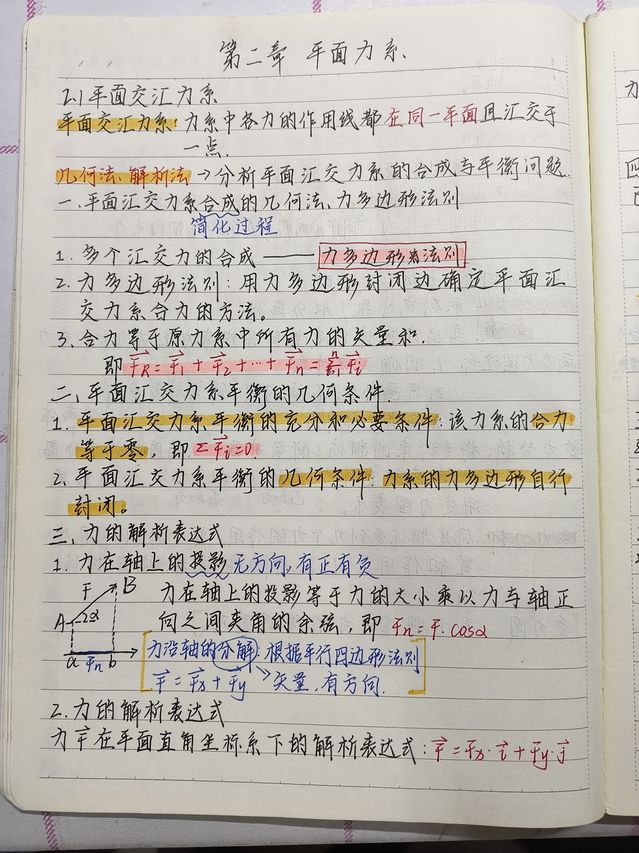 第二章 平面力系.
2.1 平面交汇力系
平面交汇力系: 力系中各力的作用线都在同一平面且汇交于
一点.
几何法、解析法 → 分析平面汇交力系的合成与平衡问题.
一. 平面汇交力系合成的几何法、力多边形法则
简化过程
1. 多个汇交力的合成 —— 力多边形法则
2. 力多边形法则: 用力多边形封闭边确定平面汇
交力系合力的方法。
3. 合力等于原力系中所有力的矢量和.
即 F⃗R = F⃗1 + F⃗2 + … + F⃗n = Σ F⃗i
二、平面汇交力系平衡的几何条件.
1. 平面汇交力系平衡的充分和必要条件: 该力系的合力
等于零, 即 ΣF⃗i=0
2. 平面汇交力系平衡的几何条件: 力系的力多边形自行
封闭。
三、力的解析表达式
1. 力在轴上的投影 无方向, 有正有负
F B
A α
a Fn b
力在轴上的投影等于力的大小乘以力与轴正
向之间夹角的余弦, 即 Fn = F·cosα
力沿轴的分解: 根据平行四边形法则
F⃗ = F⃗x + F⃗y → 矢量, 有方向.
2. 力的解析表达式
力F⃗在平面直角坐标系下的解析表达式: F⃗ = Fx·i⃗ + Fy·j⃗
力
四